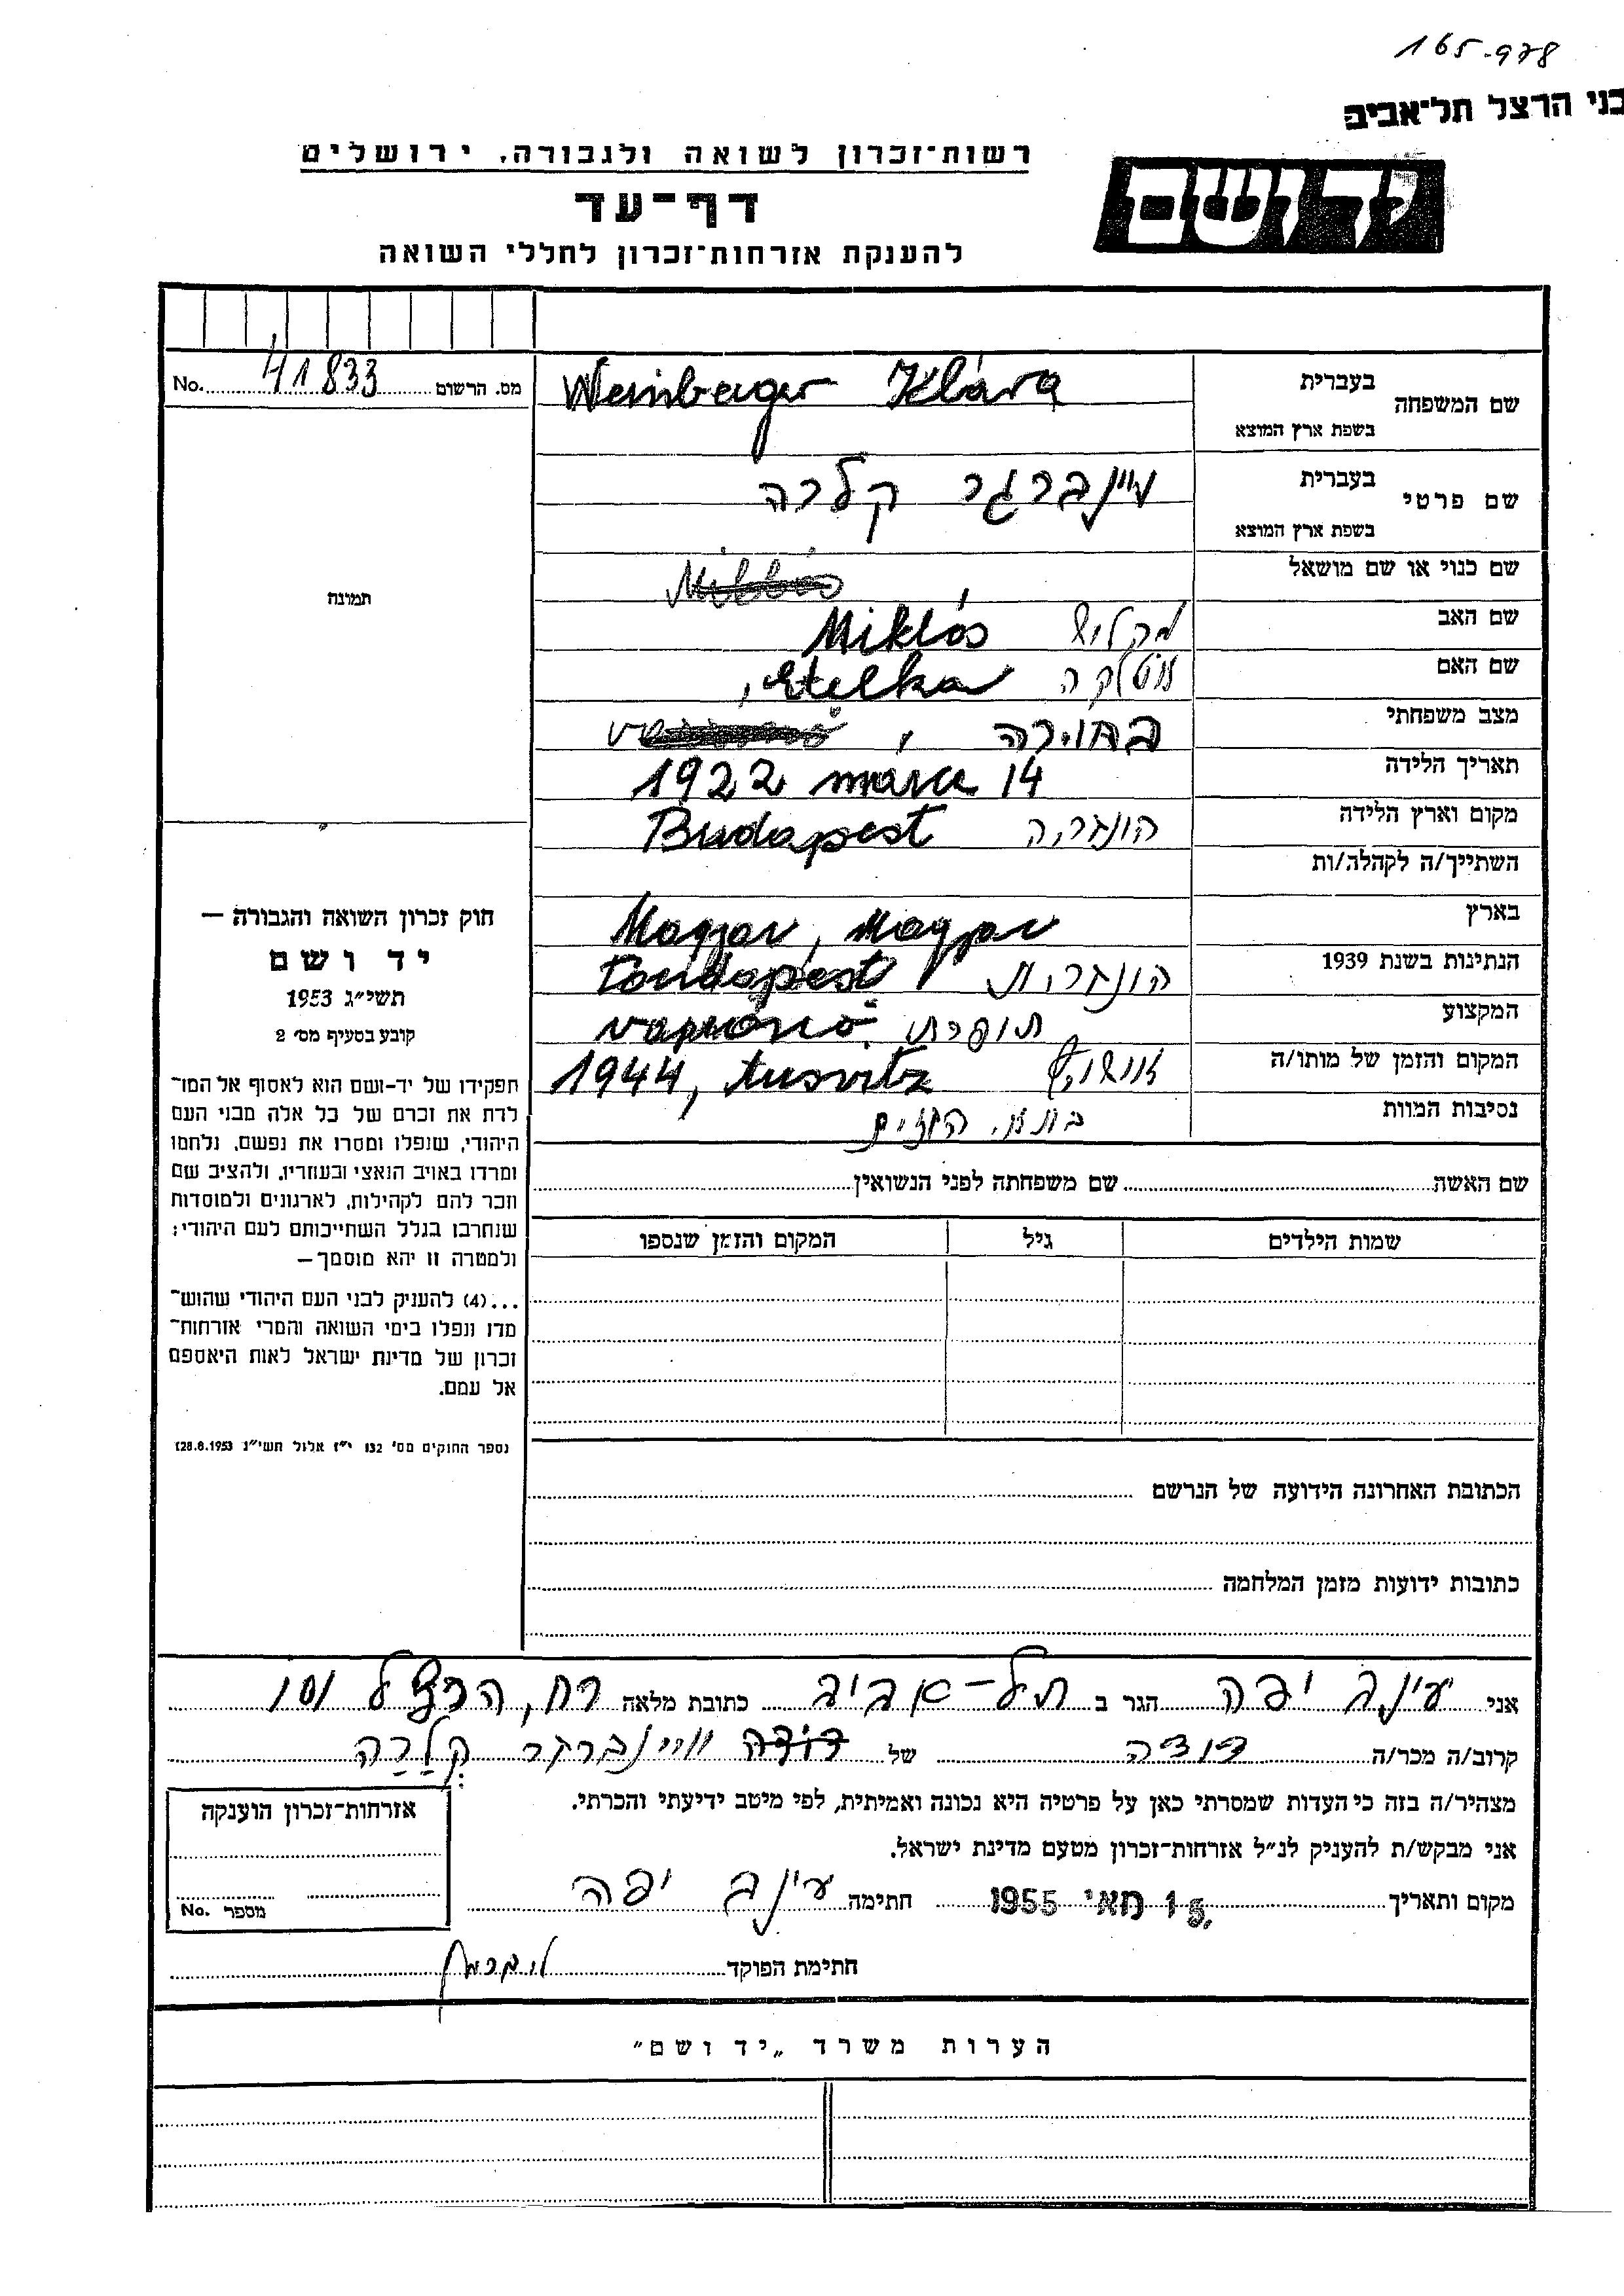 165-978
בני הרצל תל־אביב
יד ושם
רשות־זכרון לשואה ולגבורה, ירושלים
דף־עד
להענקת אזרחות־זכרון לחללי השואה
מס. הרשום 41833 No.
תמונה
שם המשפחה בעברית Weinberger Klára
בשפת ארץ המוצא
שם פרטי בעברית ויינברגר קלרה
בשפת ארץ המוצא
שם כנוי או שם מושאל
שם האב מקלוש Miklós
שם האם אטלקה Etelka,
מצב משפחתי בחורה,
תאריך הלידה 1922 márc 14
מקום וארץ הלידה הונגריה Budapest
השתייך/ה לקהלה/ות
בארץ Magyar, Magyar
הנתינות בשנת 1939 הונגרית
המקצוע תופרת varrónő
המקום והזמן של מותו/ה 1944, Ausvitz
נסיבות המוות בתא הגזים
שם האשה שם משפחתה לפני הנשואין
שמות הילדים גיל המקום והזמן שנספו
חוק זכרון השואה והגבורה —
יד ושם
תשי״ג 1953
קובע בסעיף מס׳ 2
תפקידו של יד-ושם הוא לאסוף אל המו־
לדת את זכרם של כל אלה מבני העם
היהודי, שנפלו ומסרו את נפשם, נלחמו
ומרדו באויב הנאצי ובעוזריו, ולהציב שם
וזכר להם לקהילות, לארגונים ולמוסדות
שנחרבו בגלל השתייכותם לעם היהודי;
ולמטרה זו יהא מוסמך—
...(4) להעניק לבני העם היהודי שהוש־
מדו ונפלו בימי השואה והמרי אזרחות־
זכרון של מדינת ישראל לאות היאספם
אל עמם.
(ספר החוקים מס׳ 132 י״ז אלול תשי״ג 28.8.1953)
הכתובת האחרונה הידועה של הנרשם
כתובות ידועות מזמן המלחמה
אני עינב יפה הגר ב תל-אביב כתובת מלאה רח, הרצל 101
קרוב/ה מכר/ה דודה של ויינברגר קלרה
מצהיר/ה בזה כי העדות שמסרתי כאן על פרטיה היא נכונה ואמיתית, לפי מיטב ידיעתי והכרתי.
אני מבקש/ת להעניק לנ״ל אזרחות־זכרון מטעם מדינת ישראל.
מקום ותאריך 15 מאי 1955 חתימה עינב יפה
אזרחות־זכרון הוענקה
מספר No.
חתימת הפוקד
הערות משרד „יד ושם״